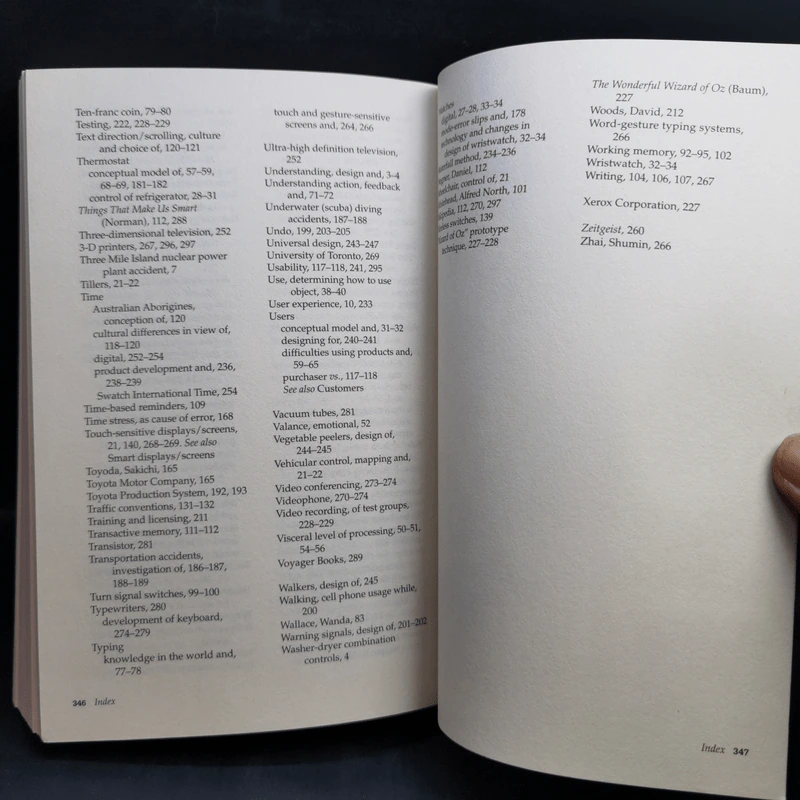 Ten-franc coin, 79–80
Testing, 222, 228–229
Text direction/scrolling, culture
and choice of, 120–121
Thermostat
conceptual model of, 57–59,
68–69, 181–182
control of refrigerator, 28–31
Things That Make Us Smart
(Norman), 112, 288
Three-dimensional television, 252
3-D printers, 267, 296, 297
Three Mile Island nuclear power
plant accident, 7
Tillers, 21–22
Time
Australian Aborigines,
conception of, 120
cultural differences in view of,
118–120
digital, 252–254
product development and, 236,
238–239
Swatch International Time, 254
Time-based reminders, 109
Time stress, as cause of error, 168
Touch-sensitive displays/screens,
21, 140, 268–269. See also
Smart displays/screens
Toyoda, Sakichi, 165
Toyota Motor Company, 165
Toyota Production System, 192, 193
Traffic conventions, 131–132
Training and licensing, 211
Transactive memory, 111–112
Transistor, 281
Transportation accidents,
investigation of, 186–187,
188–189
Turn signal switches, 99–100
Typewriters, 280
development of keyboard,
274–279
Typing
knowledge in the world and,
77–78
346 Index
touch and gesture-sensitive
screens and, 264, 266
Ultra-high definition television,
252
Understanding, design and, 3–4
Understanding action, feedback
and, 71–72
Underwater (scuba) diving
accidents, 187–188
Undo, 199, 203–205
Universal design, 243–247
University of Toronto, 269
Usability, 117–118, 241, 295
Use, determining how to use
object, 38–40
User experience, 10, 233
Users
conceptual model and, 31–32
designing for, 240–241
difficulties using products and,
59–65
purchaser vs., 117–118
See also Customers
Vacuum tubes, 281
Valance, emotional, 52
Vegetable peelers, design of,
244–245
Vehicular control, mapping and,
21–22
Video conferencing, 273–274
Videophone, 270–274
Video recording, of test groups,
228–229
Visceral level of processing, 50–51,
54–56
Voyager Books, 289
Walkers, design of, 245
Walking, cell phone usage while,
200
Wallace, Wanda, 83
Warning signals, design of, 201–202
Washer-dryer combination
controls, 4
digital, 27–28, 33–34
slips and, 178
and changes in
design of wristwatch, 32–34
method, 234–236
Daniel, 112
control of, 21
Alfred North, 101
112, 270, 297
switches, 139
of Oz" prototype
technique, 227–228
The Wonderful Wizard of Oz (Baum),
227
Woods, David, 212
Word-gesture typing systems,
266
Working memory, 92–95, 102
Wristwatch, 32–34
Writing, 104, 106, 107, 267
Xerox Corporation, 227
Zeitgeist, 260
Zhai, Shumin, 266
Index 347